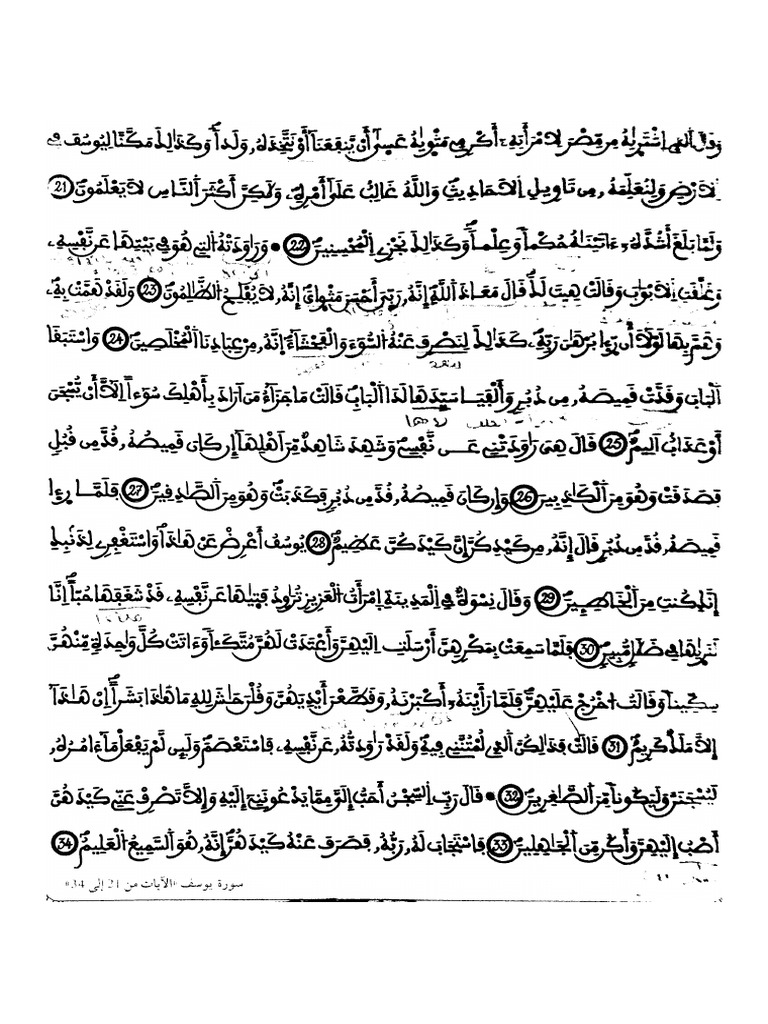 وَقَالَ اَلذِى اِشْتَرِيٰهُ مِن مِّصْرَ لِامْرَأَتِهِۦٓ أَكْرِمِى مَثْوِيٰهُ عَسِيٰٓ أَنْ يَّنفَعَنَآ أَوْ نَتَّخِذَهُۥ وَلَداٗ وَكَذَٰلِكَ مَكَّنَّا لِيُوسُفَ فِى
اِ۬لَارْضِ وَلِنُعَلِّمَهُۥ مِن تَاوِيلِ اِ۬لَاحَادِيثِ وَاللَّهُ غَالِبٌ عَلَىٰٓ أَمْرِهِۦ وَلَٰكِنَّ أَكْثَرَ اَ۬لنَّاسِ لَا يَعْلَمُونَ 21
وَلَمَّا بَلَغَ أَشُدَّهُۥٓ ءَاتَيْنَٰهُ حُكْماٗ وَعِلْماٗ وَكَذَٰلِكَ نَجْزِى اِ۬لْمُحْسِنِينَ 22 • وَرَٰوَدَتْهُ اُ۬لتِى هُوَ فِى بَيْتِهَا عَن نَّفْسِهِۦ
وَغَلَّقَتِ اِ۬لَابْوَٰبَ وَقَالَتْ هِيتَ لَكَ قَالَ مَعَاذَ اَ۬للَّهِ إِنَّهُۥ رَبِّىَ أَحْسَنَ مَثْوِاىَ إِنَّهُۥ لَا يُفْلِحُ اُ۬لظَّٰلِمُونَ 23 وَلَقَدْ هَمَّتْ بِهِۦ
وَهَمَّ بِهَا لَوْلَآ أَن رّ۪ء۪ا بُرْهَٰنَ رَبِّهِۦ كَذَٰلِكَ لِنَصْرِفَ عَنْهُ اُ۬لسُّوٓءَ وَالْفَحْشَآءَ اِ۪نَّهُۥ مِنْ عِبَادِنَا اَ۬لْمُخْلَصِينَ 24 وَاسْتَبَقَا
اَ۬لْبَابَ وَقَدَّتْ قَمِيصَهُۥ مِن دُبُرٖ وَأَلْفَيَا سَيِّدَهَا لَدَا اَ۬لْبَابِ قَالَتْ مَا جَزَآءُ مَنَ اَرَادَ بِأَهْلِكَ سُوٓءاً اِلَّآ أَنْ يُّسْجَنَ
أَوْ عَذَابٌ اَلِيمٌ 25 قَالَ هِىَ رَٰوَدَتْنِى عَن نَّفْسِى وَشَهِدَ شَاهِدٌ مِّنَ اَهْلِهَآ إِن كَانَ قَمِيصُهُۥ قُدَّ مِن قُبُلٖ
فَصَدَقَتْ وَهُوَ مِنَ اَ۬لْكَٰذِبِينَ 26 وَإِن كَانَ قَمِيصُهُۥ قُدَّ مِن دُبُرٖ فَكَذَبَتْ وَهُوَ مِنَ اَ۬لصَّٰدِقِينَ 27 فَلَمَّا رّ۪ء۪ا
قَمِيصَهُۥ قُدَّ مِن دُبُرٖ قَالَ إِنَّهُۥ مِن كَيْدِكُنَّ إِنَّ كَيْدَكُنَّ عَظِيمٌ 28 يُوسُفُ أَعْرِضْ عَنْ هَٰذَا وَاسْتَغْفِرِى لِذَنۢبِكِ
إِنَّكِ كُنتِ مِنَ اَ۬لْخَاطِـِٕينَ 29 وَقَالَ نِسْوَةٌ فِى اِ۬لْمَدِينَةِ اِ۪مْرَأَتُ اُ۬لْعَزِيزِ تُرَٰوِدُ فَتِيٰهَا عَن نَّفْسِهِۦ قَدْ شَغَفَهَا حُبّاً اِنَّا
لَنَرِيٰهَا فِى ضَلَٰلٖ مُّبِينٖ 30 فَلَمَّا سَمِعَتْ بِمَكْرِهِنَّ أَرْسَلَتِ اِلَيْهِنَّ وَأَعْتَدَتْ لَهُنَّ مُتَّكَـٔاٗ وَءَاتَتْ كُلَّ وَٰحِدَةٖ مِّنْهُنَّ
سِكِّيناٗ وَقَالَتُ اُ۟خْرُجْ عَلَيْهِنَّ فَلَمَّا رَأَيْنَهُۥٓ أَكْبَرْنَهُۥ وَقَطَّعْنَ أَيْدِيَهُنَّ وَقُلْنَ حَٰشَ لِلهِ مَا هَٰذَا بَشَراً اِنْ هَٰذَآ
إِلَّا مَلَكٌ كَرِيمٌ 31 قَالَتْ فَذَٰلِكُنَّ اَ۬لذِى لُمْتُنَّنِى فِيهِ وَلَقَدْ رَٰوَدتُّهُۥ عَن نَّفْسِهِۦ فَاسْتَعْصَمَ وَلَئِن لَّمْ يَفْعَلْ مَآ ءَامُرُهُۥ
لَيُسْجَنَنَّ وَلَيَكُوناٗ مِّنَ اَ۬لصَّٰغِرِينَ 32 • قَالَ رَبِّ اِ۬لسِّجْنُ أَحَبُّ إِلَىَّ مِمَّا يَدْعُونَنِىٓ إِلَيْهِ وَإِلَّا تَصْرِفْ عَنِّى كَيْدَهُنَّ
أَصْبُ إِلَيْهِنَّ وَأَكُن مِّنَ اَ۬لْجَٰهِلِينَ 33 فَاسْتَجَابَ لَهُۥ رَبُّهُۥ فَصَرَفَ عَنْهُ كَيْدَهُنَّ إِنَّهُۥ هُوَ اَ۬لسَّمِيعُ اُ۬لْعَلِيمُ 34
سورة يوسف «الآيات من 21 إلى 34»